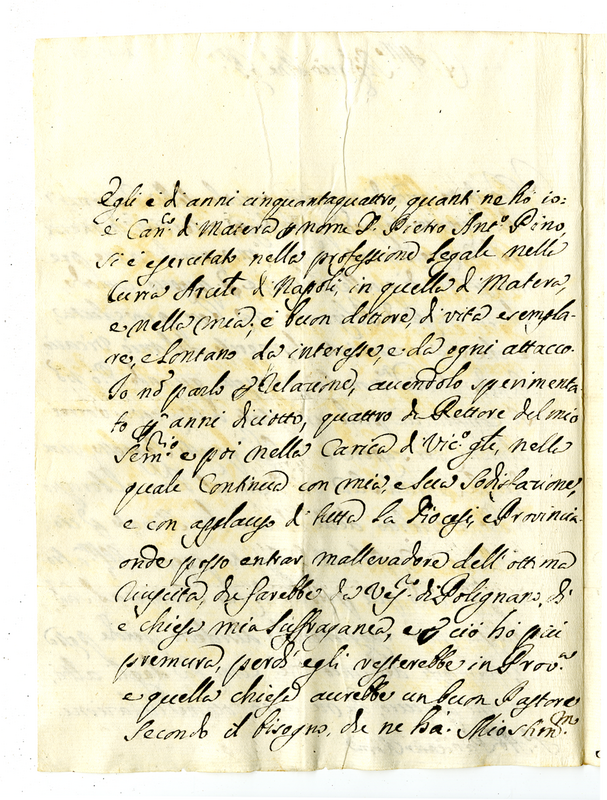 Egli è di anni cinquantaquattro, quanti ne hò io:
è Can.co di Matera p nome D. Pietro Ant.o Pino,
si è esercitato nella professione Legale nella
Curia Arciv.le di Napoli, in quella di Matera,
e nella mia, è buon dottore, di vita esempla-
re, e lontano da interesse, e da ogni attacco.
Io nō parlo p Relazione, avendolo sperimenta-
to p anni diciotto, quattro di Rettore del mio
Sem.rio e poi nella Carica di Vic.o gñle, nella
quale Continua con mia, e sua Sodisfazione,
e con applauso di tutta la Diocesi, e Provincia
onde posso entrar mallevadore dell'ottima
riuscita, che farebbe da Vesc.o di Polignano, ch'
è chiesa mia suffraganea, e p ciò ho più
premura, perche egli resterebbe in Prov.a
e quella chiesa avrebbe un buon Pastore
secondo il bisogno, che ne hà.